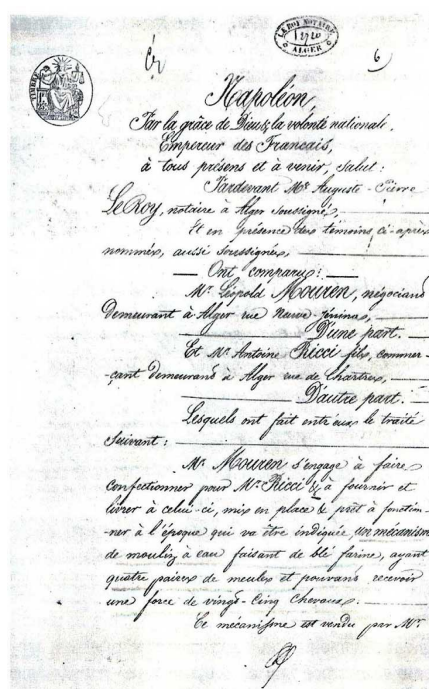 LE ROY NOTAIRE
ALGER
6
TIMBRE
Napoléon,
Par la grâce de Dieu & la volonté nationale,
Empereur des Français,
à tous présens et à venir, Salut:
Pardevant Me Auguste-Pierre
Le Roy, notaire à Alger soussigné,
Et en présence des témoins, ci-après
nommés, aussi soussignés,
Ont comparu:
Mr. Léopold Mouren, négociant
Demeurant à Alger rue Neuve-Jénina,
D'une part.
Et Mr Antoine Ricci fils, commer-
çant Demeurant à Alger rue de Chartres,
D'autre part.
Lesquels ont fait entr'eux le traité
Suivant:
Mr Mouren s'engage à faire
confectionner pour Mr Ricci & à fournir et
livrer à celui-ci, mis en place & prêt à fonction-
ner à l'époque qui va être indiquée, un mécanisme
de moulin à eau faisant de blé farine, ayant
quatre paires de meules et pouvant recevoir
une force de vingt-Cinq Chevaux.
Ce mécanisme est vendu par Mr